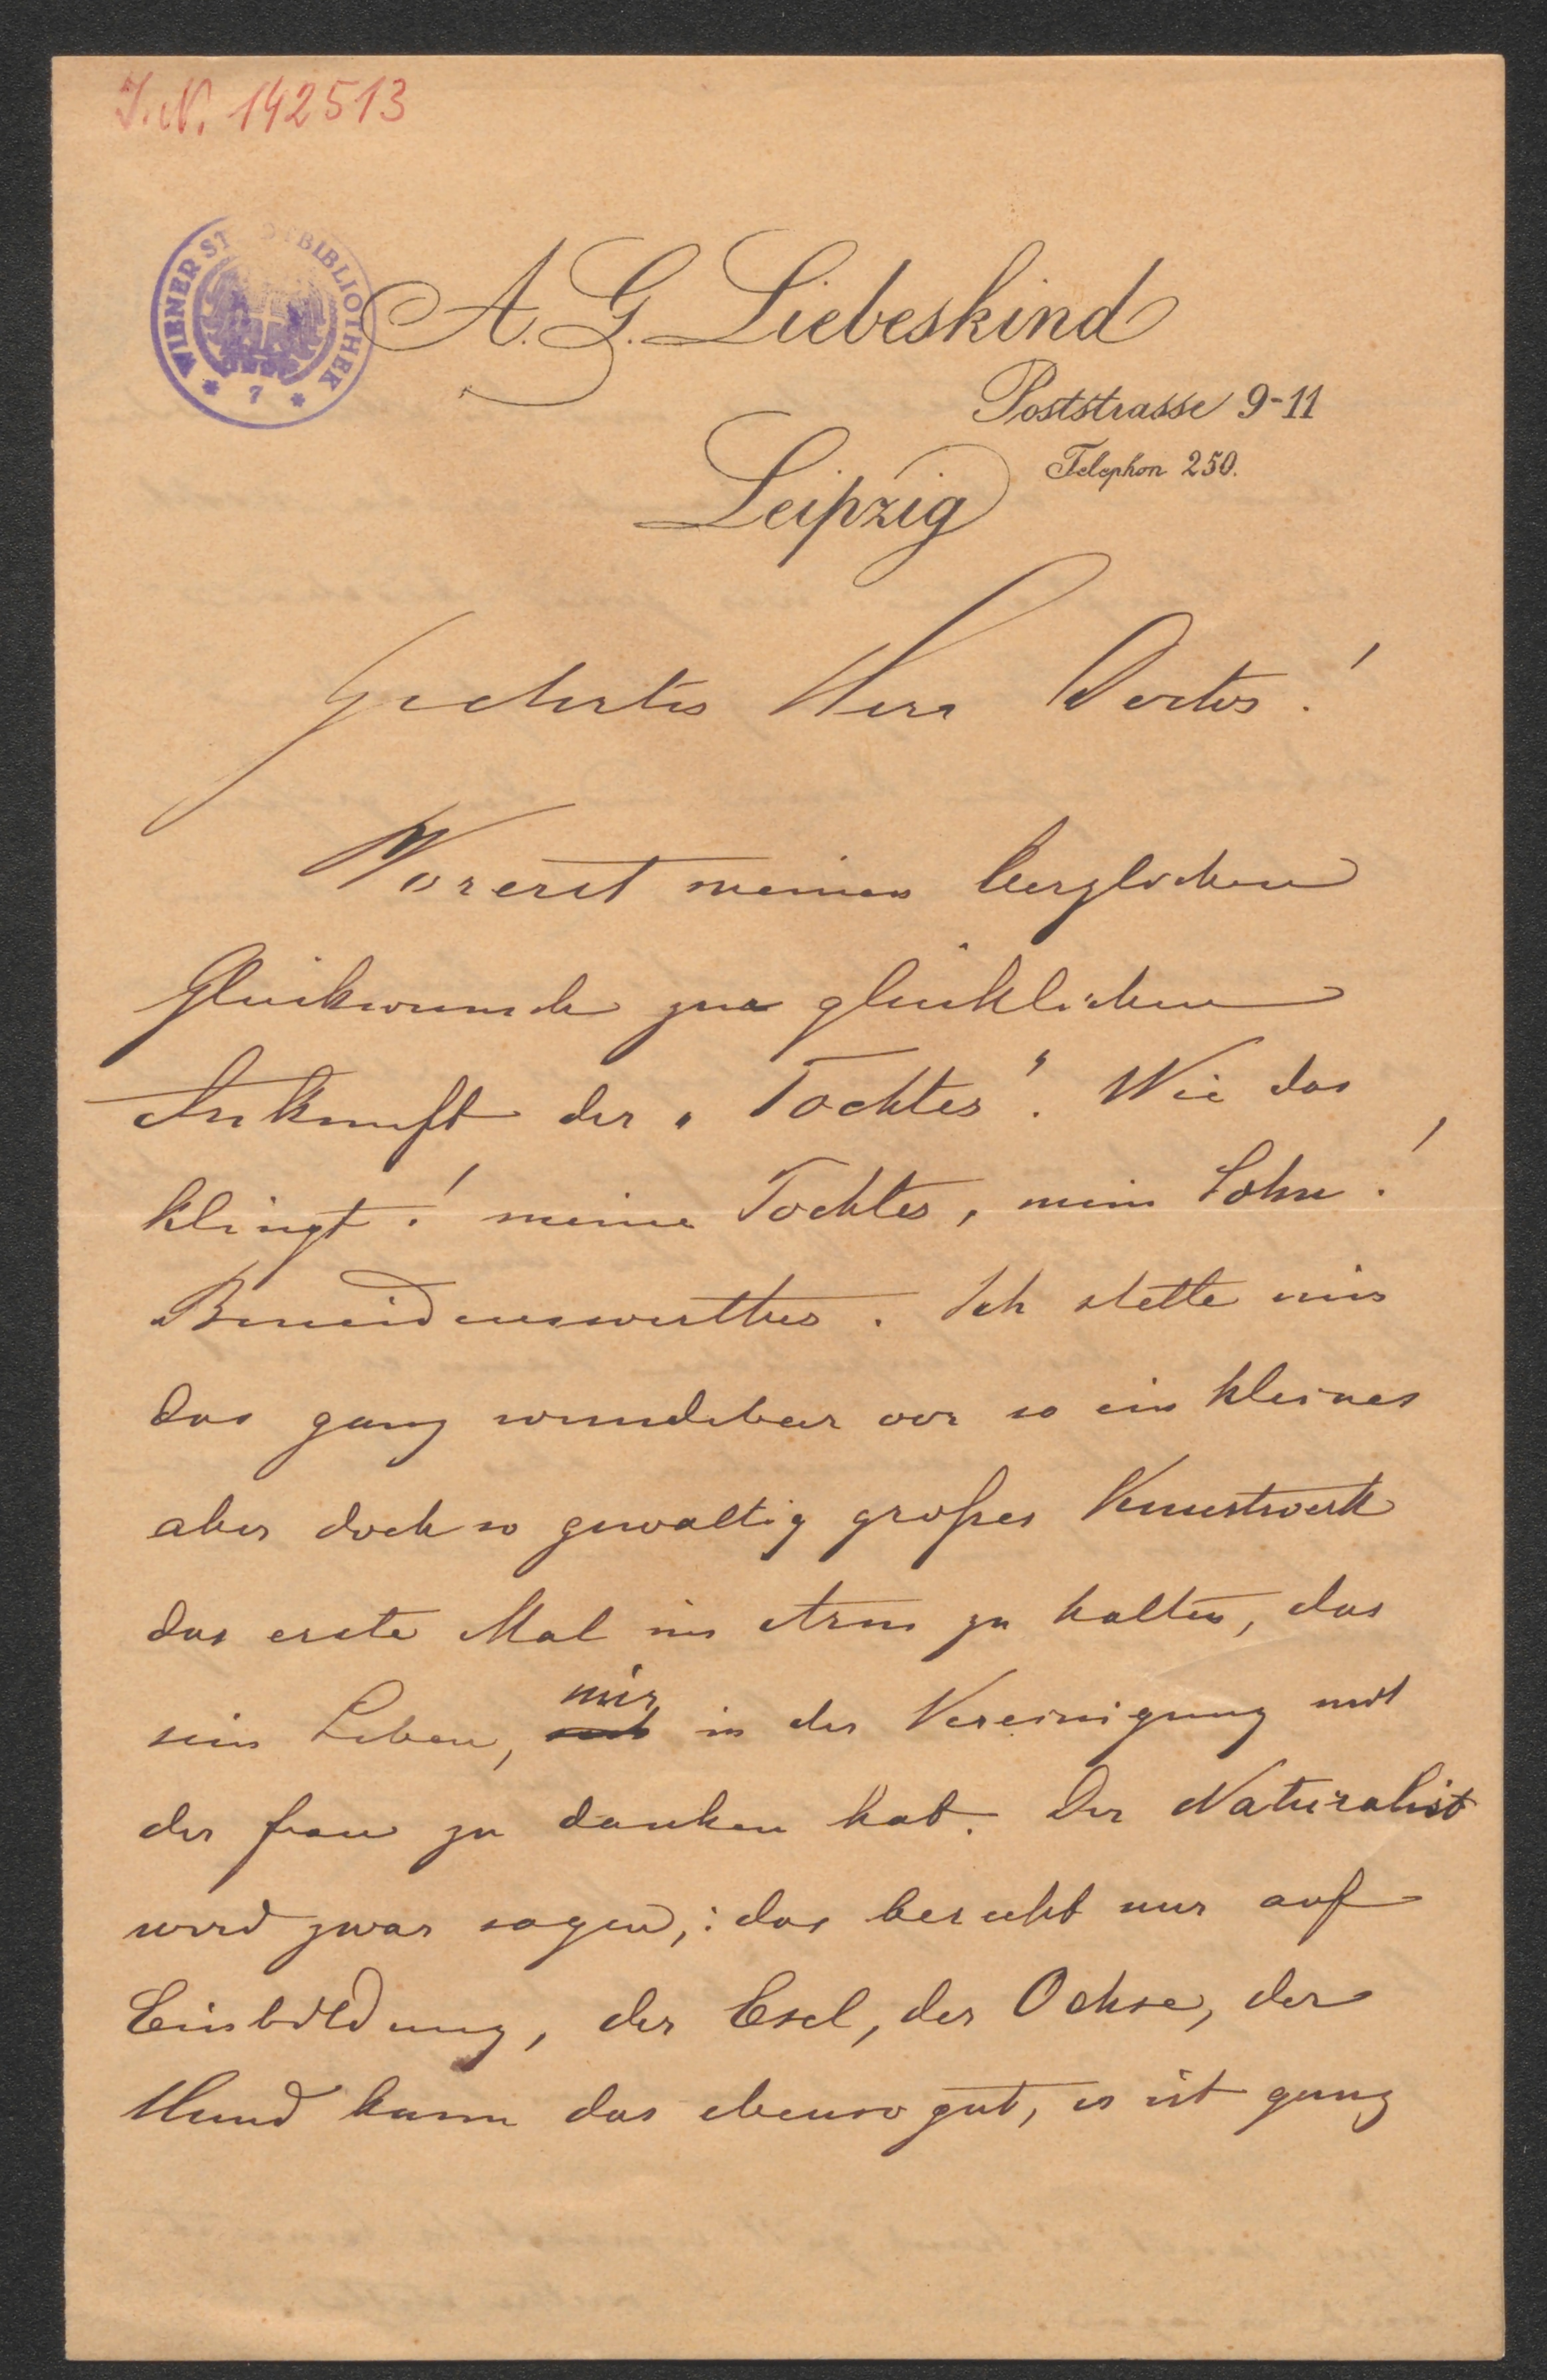 J.N. 142513
WIENER STADTBIBLIOTHEK
* 7 *
A. G. Liebeskind
Poststrasse 9-11
Telephon 250.
Leipzig
Geehrter Herr Doctor!
Vorerst meinen herzlichen
Glückwunsch zur glücklichen
Ankunft der „Tochter". Wie das
klingt! meine Tochter, mein Sohn!
Beneidenswerther. Ich stelle mir
das ganz wunderbar vor so ein kleines
aber doch so gewaltig großes Kunstwerk
das erste Mal im Arm zu halten, das
sein Leben, mir in der Vereinigung mit
der Frau zu danken hat. Der Naturalist
wird zwar sagen,: das beruht nur auf
Einbildung, der Esel, der Ochse, der
Hund kann das ebenso gut, es ist ganz